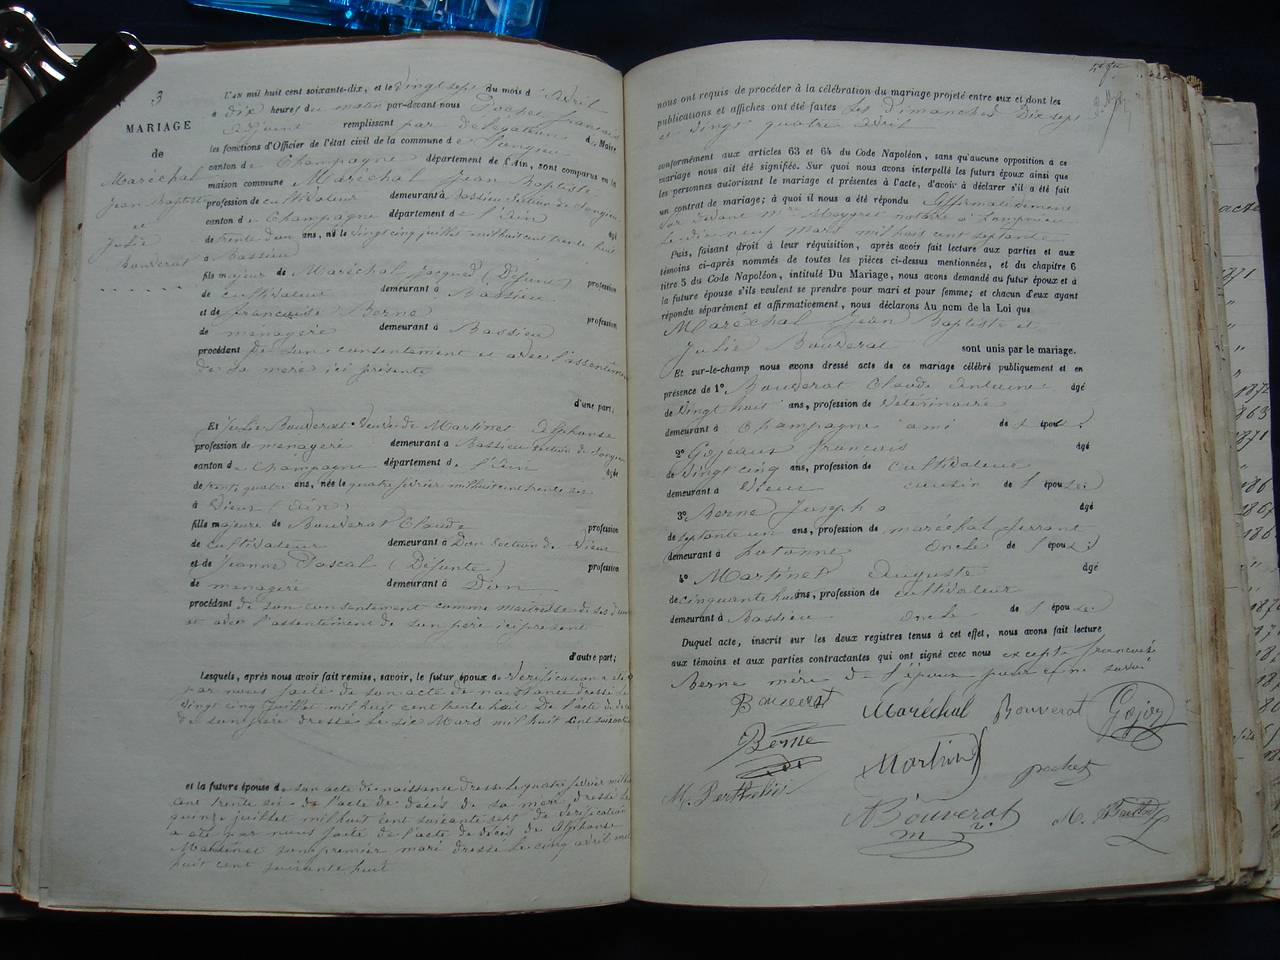 3
MARIAGE
de
Maréchal
Jean Baptiste
et
Julie
Bouverat
L'an mil huit cent soixante-dix, et le vingt sept du mois d'Avril
a dix heures du matin par-devant nous Pochet François
Adjoint remplissant par délégation de Maire,
les fonctions d'Officier de l'état civil de la commune de Songieu
canton de Champagne département de l'Ain, sont comparus en la
maison commune Maréchal Jean Baptiste
profession de cultivateur demeurant à Bassieu section de Songieu
canton de Champagne département de l'Ain âgé
de trente un ans, né le vingt cinq juillet mil huit cent trente huit
à Bassieu
fils majeur de Maréchal Jacques (Défunt) profession
de cultivateur demeurant à Bassieu
et de françoise Berne profession
de ménagère demeurant à Bassieu
procédant de son consentement et avec l'assentiment
de sa mère ici présente
d'une part;
Et Julie Bouverat veuve de Martinet Alphonse
profession de menagère demeurant à Bassieu section de Songieu
canton de Champagne département de l'Ain âgée
de trente quatre ans, née le quatre février mil huit cent trente six
à Vieu (Ain)
fille majeure de Bouverat Claude profession
de cultivateur demeurant à Don section de Vieu
et de Jeanne Pascal (Défunte) profession
de menagère demeurant à Don
procédant de son consentement comme maîtresse de ses droits
et avec l'assentiment de son père ici présent
d'autre part;
Lesquels, après nous avoir fait remise, savoir, le futur époux de vérification a été
par nous faite de son acte de naissance dressé le
vingt cinq Juillet mil huit cent trente huit De l'acte de décès
de son père dressé le six Mars mil huit cent soixante
et la future épouse de son acte de naissance dressé le quatre février mil huit
cent trente six de l'acte de décès de sa mère dressé le
quinze juillet mil huit cent soixante sept de vérification
a été par nous faite de l'acte de décès de Alphonse
Martinet son premier mari dressé le cinq avril mil
huit cent soixante huit
nous ont requis de procéder à la célébration du mariage projeté entre eux et dont les
publications et affiches ont été faites les dimanches dix sept
et vingt quatre avril
conformément aux articles 63 et 64 du Code Napoléon, sans qu'aucune opposition a ce
mariage nous ait été signifiée. Sur quoi nous avons interpellé les futurs époux ainsi que
les personnes autorisant le mariage et présentes à l'acte, d'avoir à déclarer s'il a été fait
un contrat de mariage; à quoi il nous a été répondu affirmativement
par devant Mtre Meygret notaire à
le dix neuf mars mil huit cent septante
Puis, faisant droit à leur réquisition, après avoir fait lecture aux parties et aux
témoins ci-après nommés de toutes les pièces ci-dessus mentionnées, et du chapitre 6
titre 5 du Code Napoléon, intitulé Du Mariage, nous avons demandé au futur époux et à
la future épouse s'ils veulent se prendre pour mari et pour femme; et chacun d'eux ayant
répondu séparément et affirmativement, nous déclarons Au nom de la Loi que
Maréchal Jean Baptiste et
Julie Bouverat sont unis par le mariage.
Et sur-le-champ nous avons dressé acte de ce mariage célébré publiquement et en
présence de 1° Bouverat Claude Antoine âgé
de vingt huit ans, profession de vétérinaire
demeurant à Champagne ami de l'époux
2° Gojeaux françois âgé
de vingt cinq ans, profession de cultivateur
demeurant a Vieu cousin de l'épouse
3° Berne Joseph âgé
de septante un ans, profession de maréchal ferrant
demeurant à Lotonne oncle de l'époux
4° Martinet Auguste âgé
de cinquante huit ans, profession de cultivateur
demeurant à Bassieu oncle de l'épouse
Duquel acte, inscrit sur les deux registres tenus à cet effet, nous avons fait lecture
aux témoins et aux parties contractantes qui ont signé avec nous excepté françoise
Berne mère de l'époux pour ne savoir
Bouverat Maréchal Bouverat Gojoz
Berne Martinet pochet
M. Berthelier Bouverat M. Baillod
m v.